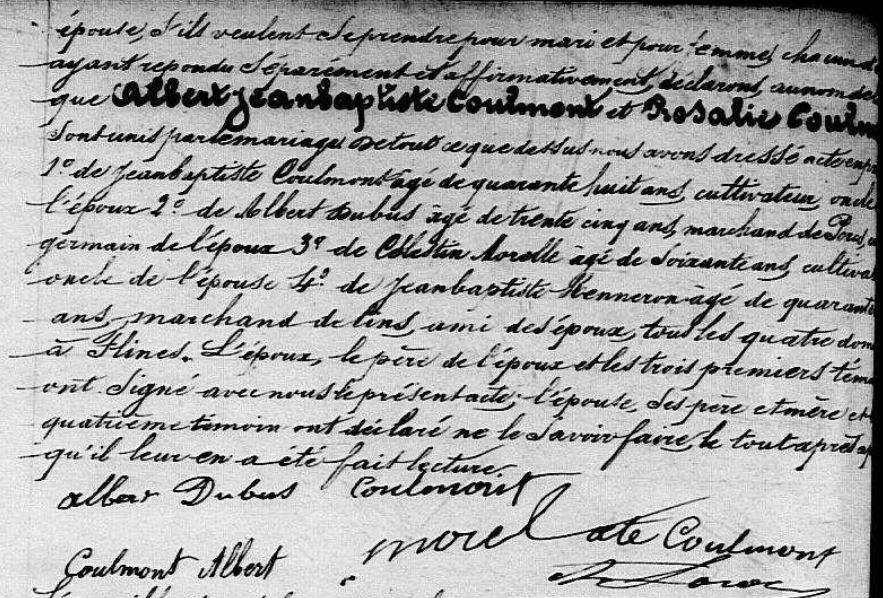 épouse, s'ils veulent se prendre pour mari et pour femme, chacun d
ayant repondu séparément et affirmativement, déclarons, au nom de
que Albert Jeanbaptiste Coulmont et Rosalie Coulm
sont unis par le mariage De tout ce que dessus nous avons dressé acte en
1º de Jeanbaptiste Coulmont âgé de quarante huit ans, cultivateur, oncle
l'époux 2º de Albert Dubus âgé de trente cinq ans, marchand de
germain de l'époux 3º de Célestin Morelle âgé de soixante ans, cultiva
oncle de l'épouse 4º de Jeanbaptiste Henneron âgé de quarante
ans, marchand de lins, ami des époux, tous les quatre dom
à Flines. L'époux, le père de l'époux et les trois premiers tém
ont signé avec nous le présent acte; l'épouse, ses père et mère et
quatrième témoin ont déclaré ne le savoir faire, le tout après
qu'il leur en a été fait lecture.
albert Dubus Coulmont
morel Coulmont
Coulmont Albert